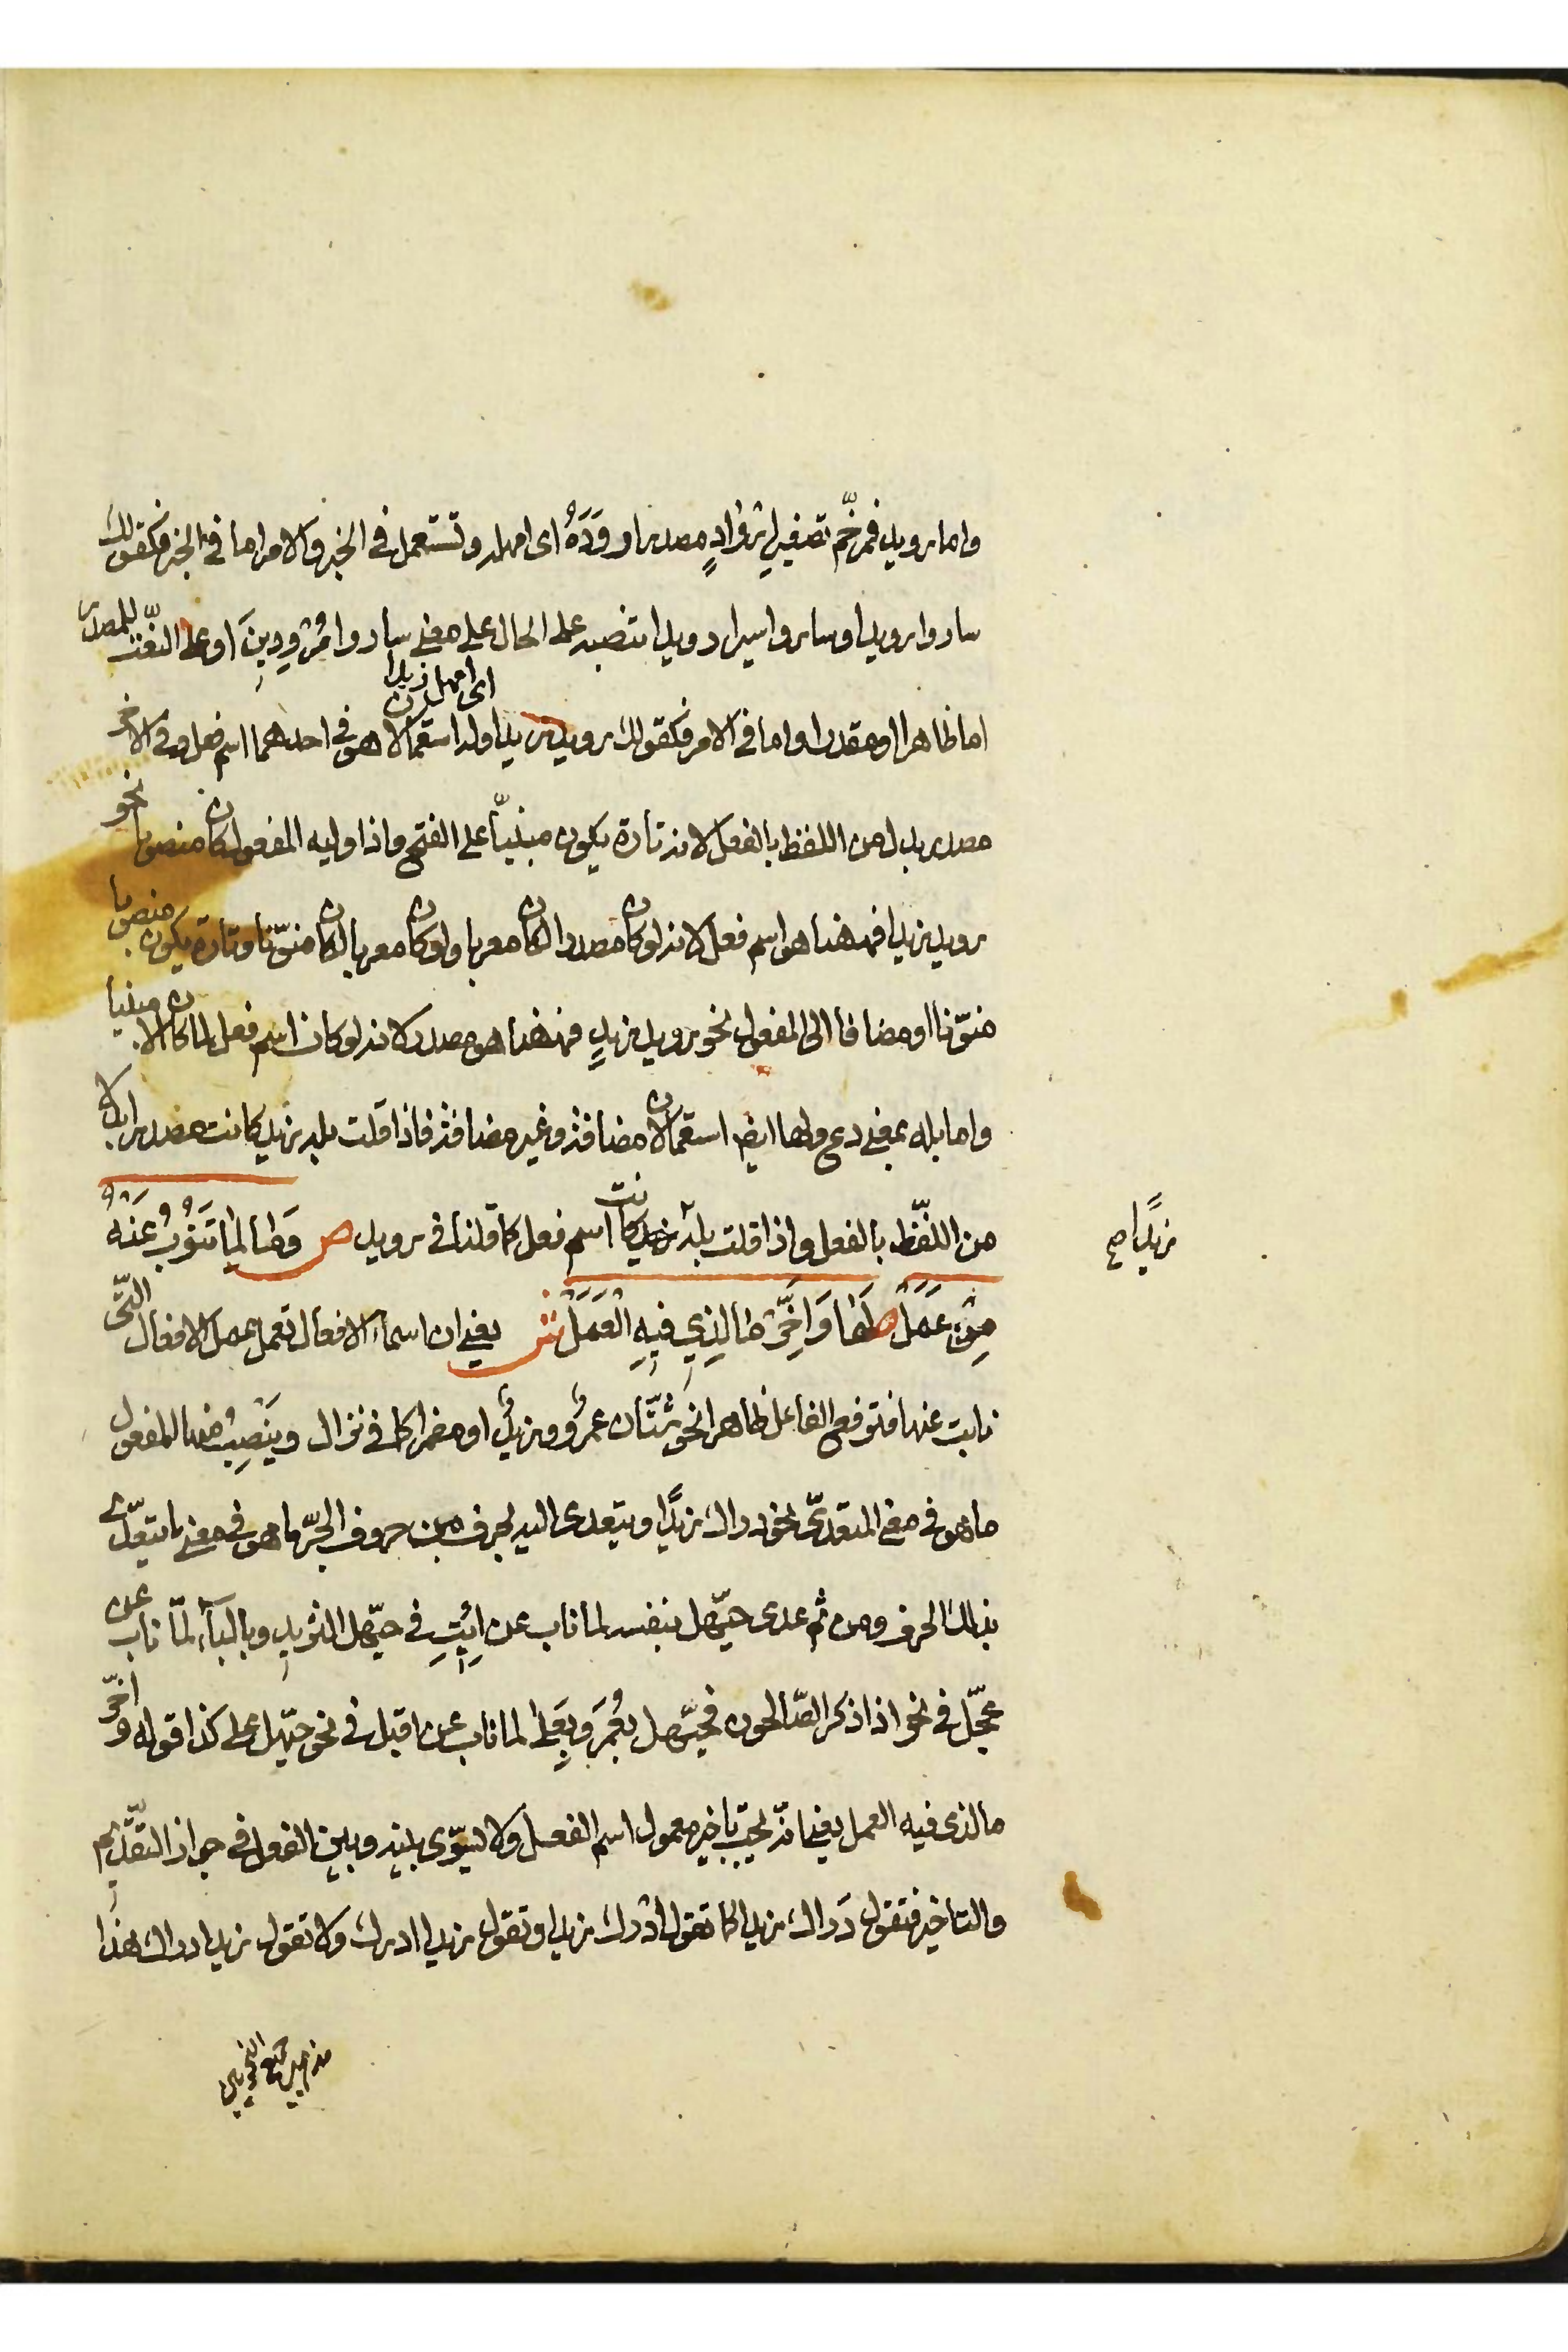 واما رويد فمرخّم تصغير اِرْوَادٍ مصدر اروَدَهُ اى امهله وتستعمل فى الخبر والامر اما فى الخبر فكقولك
ساروا رويدا وساروا سيرا رويدا تنصبه على الحال على معنى ساروا مُرْوِدِينَ او على النّعت للمصدر
اى امهل زيدا
اما ظاهرا او مقدرا واما فى الامر فكقولك رويد زيدا وله استعمالان هو فى احدهما اسم فعل وفى الاخر
مصدر بدل من اللفظ بالفعل لانه تارة يكون مبنيّا على الفتح واذا وليه المفعول كان منصوبا نحو
رويد زيدا فههنا هو اسم فعل لانه لو كان مصدرا لكان معربا ولو كان معربا لكان منوّنا وتارة يكون منصوبا
منوّنا او مضافا الى المفعول نحو رويد زيدٍ فههنا هو مصدر لانه لو كان اسم فعل لما كان الا مبنيا
واما بله بمعنى دع ولها ايضا استعمالان مضافة وغير مضافة فاذا قلت بله زيد كانت مصدرا بدلا
من اللّفظ بالفعل واذا قلت بلهَ زيد كانت اسم فعل كما قلنا فى رويد ص وَمَا لِمَا تَنُوْبُ عَنْهُ
زيدًا صح
مِنْ عَمَلْ لَهَا وَاَخِّرْ مَا لِذِي فِيهِ الْعَمَلْ ش يعنى ان اسماء الافعال تعمل عمل الافعال التّى
نابت عنها فترفع الفاعل ظاهرا نحو شتّان عمرٌو وزيدٌ او مضمرا كما فى نزال ويَنْصِبُ منها المفعول
ما هو فى معنى المتعدّى نحو دراك زيدًا ويتعدى اليه بحرف من حروف الجرّ ما هو فى معنى ما يتعدّى
بذلك الحرف ومن ثم عدى حيّهل بنفسه لما ناب عن اِئْتِ فى حيّهل الثريد وبالباء لمّا ناب عن
عجّل فى نحو اذا ذكر الصّالحون فحيّهل بعُمَرَ وبعَلى لما ناب عن اقبل فى نحو حيّهل على كذا قوله واخّر
ما لذى فيه العمل يعنى انّه يجب تاخير معمول اسم الفعل ولا يسوّى بينه وبين الفعل فى جواز التقديم
والتاخير فتقول دَراك زيدا كما تقول اَدْرك زيدا وتقول زيدا ادرك ولا تقول زيدا دراك هذا
مذهب جميع النحويين